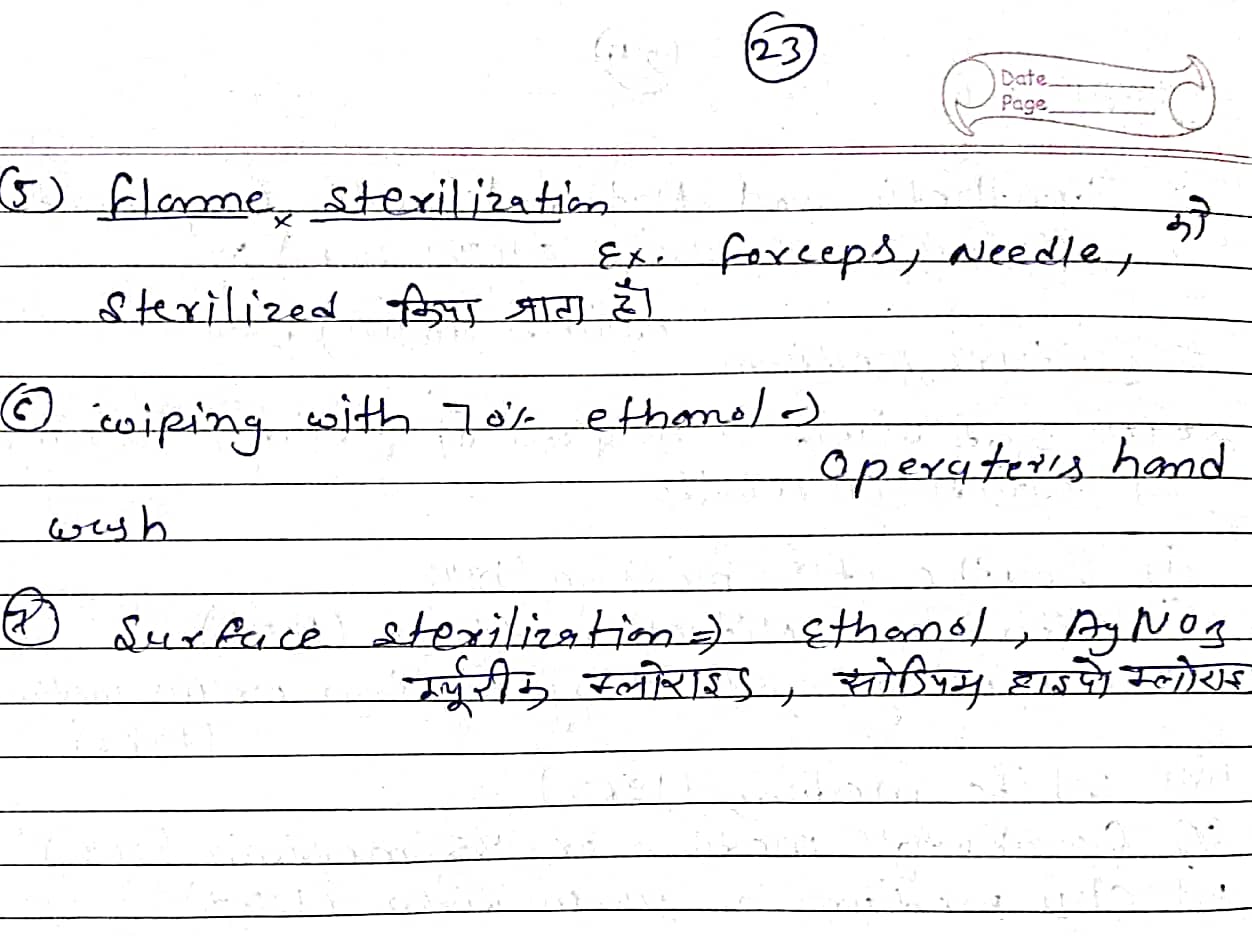 23
Date
Page
(5) flame sterilization
Ex. forceps, Needle, को
sterilized किया जाता है।
⑥ wiping with 70% ethanol ⇒
Operater's hand
wash
⑦ Surface sterilization ⇒ Ethanol, AgNO3
म्यूरीक क्लोराइड, सोडियम हाइपो क्लोराइ